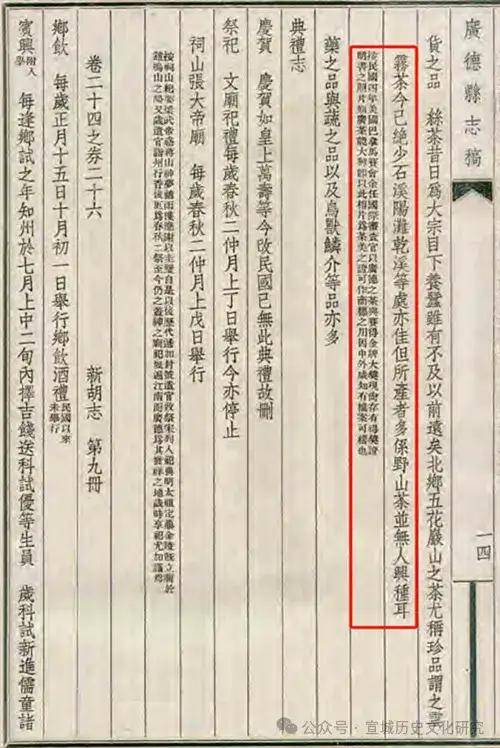 廣德縣志稿
一四
貨之品　絲茶昔日爲大宗目下養蠶雖有不及以前遠矣北鄉五花巖山之茶尤稱珍品謂之雲
霧茶今已絶少石溪陽灘乾溪等處亦佳但所產者多係野山茶並無人興種耳
按民國四年美國巴拿馬賽會余任國際審查官以廣德之茶與賽得金牌大獎現尚存有得獎證
明書之照片
藥之品與蔬之品以及鳥獸鱗介等品亦多
典禮志
慶賀　慶賀如皇上萬壽等今改民國已無此典禮故刪
祭祀　文廟祀禮每歲春秋二仲月上丁日舉行今亦停止
祠山張大帝廟　每歲春秋二仲月上戊日舉行
卷二十四之券二十六　新胡志　第九冊
鄉飲　每歲正月十五日十月初一日舉行鄉飲酒禮民國以來未舉行
賓興附入學　每逢鄉試之年知州於七月上中二旬內擇吉餞送科試優等生員　歲科試新進儒童諸
公众号·宣城历史文化研究